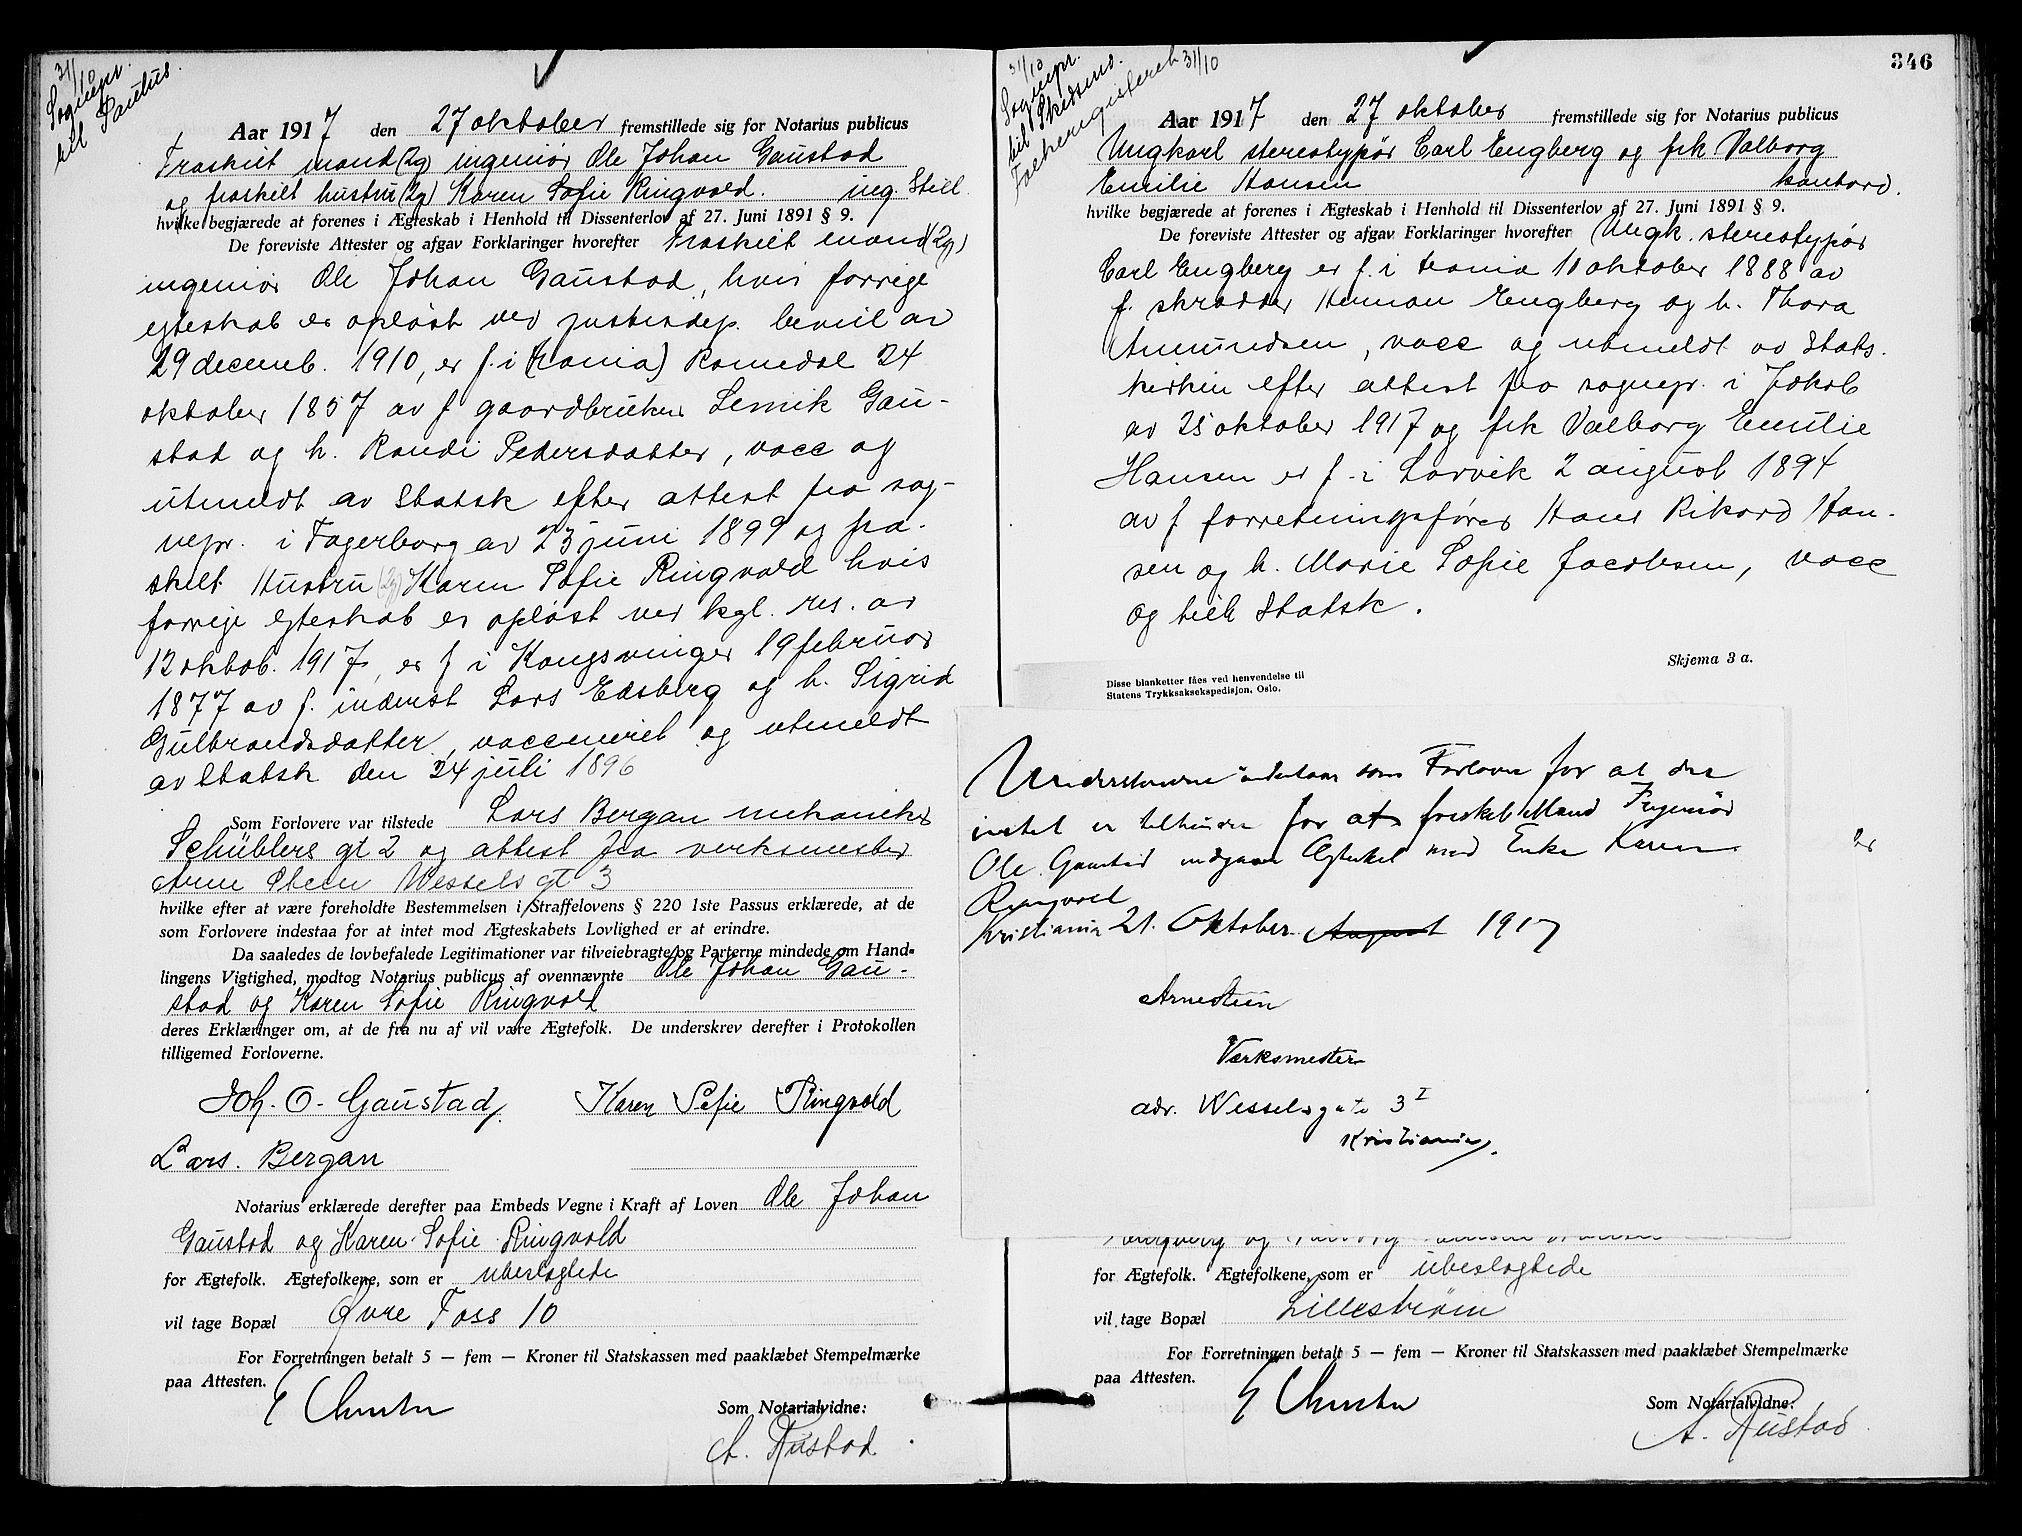 31/10
Sognepr.
til Paulus.
Aar 1917 den 27 oktober fremstillede sig for Notarius publicus
Fraskilt mand (2g) ingeniør Ole Johan Gaustad
og fraskilt hustru (2g) Karen Sofie Ringvold. ing. Still.
hvilke begjærede at forenes i Ægteskab i Henhold til Dissenterlov af 27. Juni 1891 § 9.
De foreviste Attester og afgav Forklaringer hvorefter Fraskilt mand (2g)
ingeniør Ole Johan Gaustad, hvis forrige
egteskab er opløst ved justisdep. bevil av
29 decemb. 1910, er f. i (krania) Romedal 24
oktober 1857 av f gaardbruker Lemik Gau-
stad og h. Randi Pedersdatter, vacc og
utmeldt av Statsk efter attest fra sog-
nepr. i Fagerborg av 23 juni 1899 og fra-
skilt Hustru (2g) Karen Sofie Ringvold hvis
forrige egteskab er opløst ved kgl. res. av
12 oktob. 1917, er f i Kongsvinger 19 februar
1877 av f. inderst Lars Edsberg og h. Sigrid
Gulbrandsdatter, vaccineret og utmeldt
av Statsk den 24 juli 1896
Som Forlovere var tilstede Lars Bergan mekaniker
Schüblers gt 2 og attest fra verksmester
Arne Steen Wessels gt 3
hvilke efter at være foreholdte Bestemmelsen i Straffelovens § 220 1ste Passus erklærede, at de
som Forlovere indestaa for at intet mod Ægteskabets Lovlighed er at erindre.
Da saaledes de lovbefalede Legitimationer var tilveiebragte og Parterne mindede om Hand-
lingens Vigtighed, modtog Notarius publicus af ovennævnte Ole Johan Gau-
stad og Karen Sofie Ringvold
deres Erklæringer om, at de fra nu af vil være Ægtefolk. De underskrev derefter i Protokollen
tilligemed Forloverne.
Joh. O. Gaustad, Karen Sofie Ringvold
Lars. Bergan
Notarius erklærede derefter paa Embeds Vegne i Kraft af Loven Ole Johan
Gaustad og Karen Sofie Ringvold
for Ægtefolk. Ægtefolkene, som er ubeslegtede
vil tage Bopæl Øvre Foss 10
For Forretningen betalt 5 — fem — Kroner til Statskassen med paaklæbet Stempelmærke
paa Attesten.
Som Notarialvidne:
A. Rustad
346
31/10
Sognepr.
til Skedsmo.
Folkeregisteret 31/10
Aar 1917 den 27 oktober fremstillede sig for Notarius publicus
Ungkarl stereotypør Carl Engberg og frk Valborg
Emilie Hansen kontord.
hvilke begjærede at forenes i Ægteskab i Henhold til Dissenterlov af 27. Juni 1891 § 9.
De foreviste Attester og afgav Forklaringer hvorefter Ungk. stereotypør
Carl Engberg er f. i krania 10 oktober 1888 av
f. skrædder Herman Engberg og h. Thora
Amundsen, vacc og utmeldt av Stats-
kirken efter attest fra sognepr. i Jakob
av 25 oktober 1917 og frk Valborg Emilie
Hansen er f. i Larvik 2 august 1894
av f forretningsfører Hans Rikard Han-
sen og h. Marie Sofie Jacobsen, vacc
og tilh Statsk.
Skjema 3 a.
Disse blanketter fåes ved henvendelse til
Statens Trykksaksekspedisjon, Oslo.
Undertegnede indestaar som Forlover for at der
intet er tilhinder for at fraskilt Mand Ingeniør
Ole Gaustad indgaar Ægteskab med Enke Karen
Ringvold
Kristiania 21. Oktober August 1917
Arne Steen
Værksmester
adr. Wesselsgate 3 I
Kristiania.
for Ægtefolk. Ægtefolkene, som er ubeslegtede
vil tage Bopæl Lillestrøm
For Forretningen betalt 5 — fem — Kroner til Statskassen med paaklæbet Stempelmærke
paa Attesten.
Som Notarialvidne:
A. Rustad